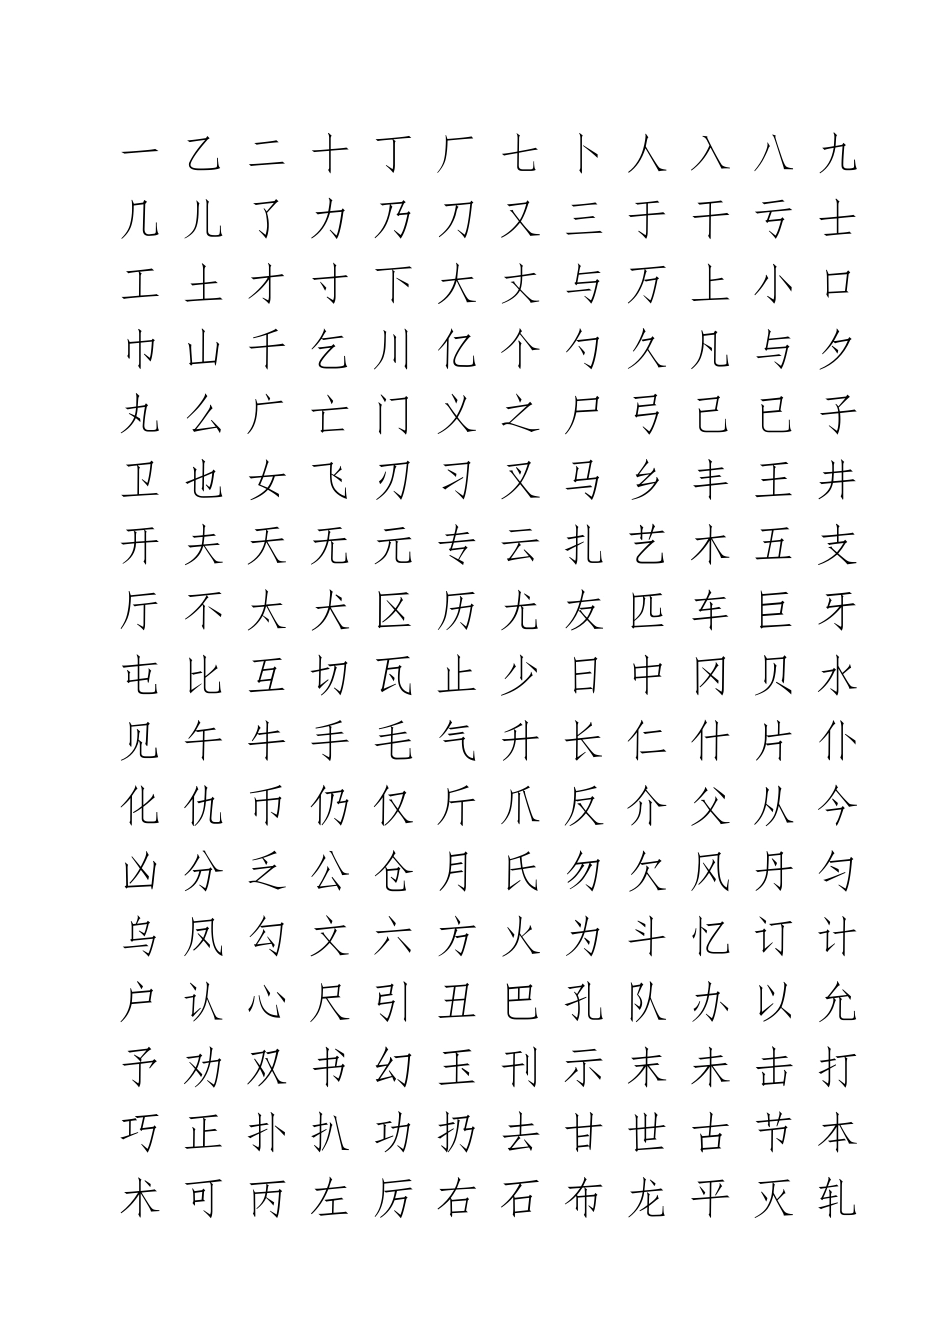 一 乙 二 十 丁 厂 七 卜 人 入 八 九
几 儿 了 力 乃 刀 又 三 于 干 亏 士
工 土 才 寸 下 大 丈 与 万 上 小 口
巾 山 千 乞 川 亿 个 勺 久 凡 与 夕
丸 么 广 亡 门 义 之 尸 弓 己 已 子
卫 也 女 飞 刃 习 叉 马 乡 丰 王 井
开 夫 天 无 元 专 云 扎 艺 木 五 支
厅 不 太 犬 区 历 尤 友 匹 车 巨 牙
屯 比 互 切 瓦 止 少 日 中 冈 贝 水
见 午 牛 手 毛 气 升 长 仁 什 片 仆
化 仇 币 仍 仅 斤 爪 反 介 父 从 今
凶 分 乏 公 仓 月 氏 勿 欠 风 丹 匀
乌 凤 勾 文 六 方 火 为 斗 忆 订 计
户 认 心 尺 引 丑 巴 孔 队 办 以 允
予 劝 双 书 幻 玉 刊 示 末 未 击 打
巧 正 扑 扒 功 扔 去 甘 世 古 节 本
术 可 丙 左 厉 右 石 布 龙 平 灭 轧